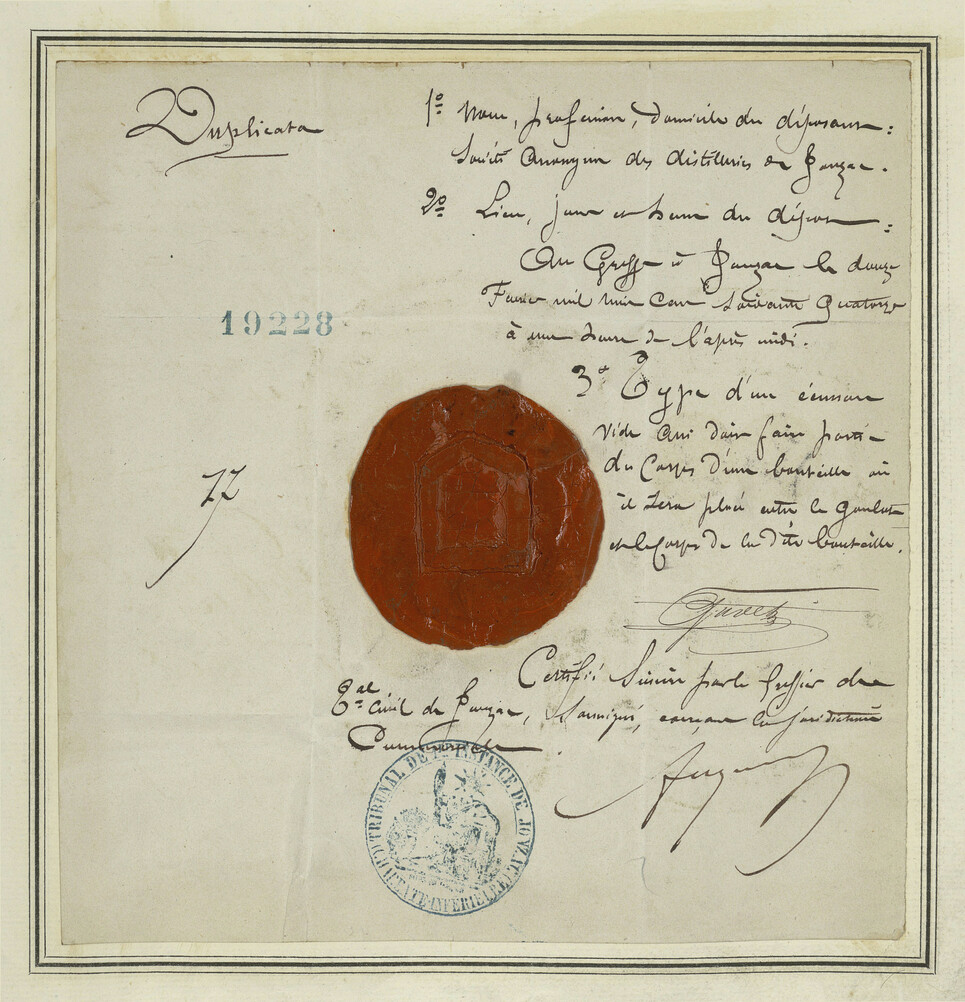 Duplicata
1º Nom, profession, domicile du déposant :
Société Anonyme des distilleries de Jonzac.
2º Lieu, jour et heure du dépot :
Au Greffe à Jonzac le douze
Février mil huit cent soixante quatorze
à une heure de l'après midi.
19228
3º Type d'un écusson
vide qui doit faire partie
du Corps d'une bouteille où
il sera placé entre le Goulot
et le Corps de la dite bouteille.
77
Certifié Sincère par le Greffier du
Bal Civil de Jonzac, Soussigné, exerçant la juridiction
Commerciale
TRIBUNAL DE 1RE INSTANCE DE JONZAC
(CHARENTE-INFERIEURE)